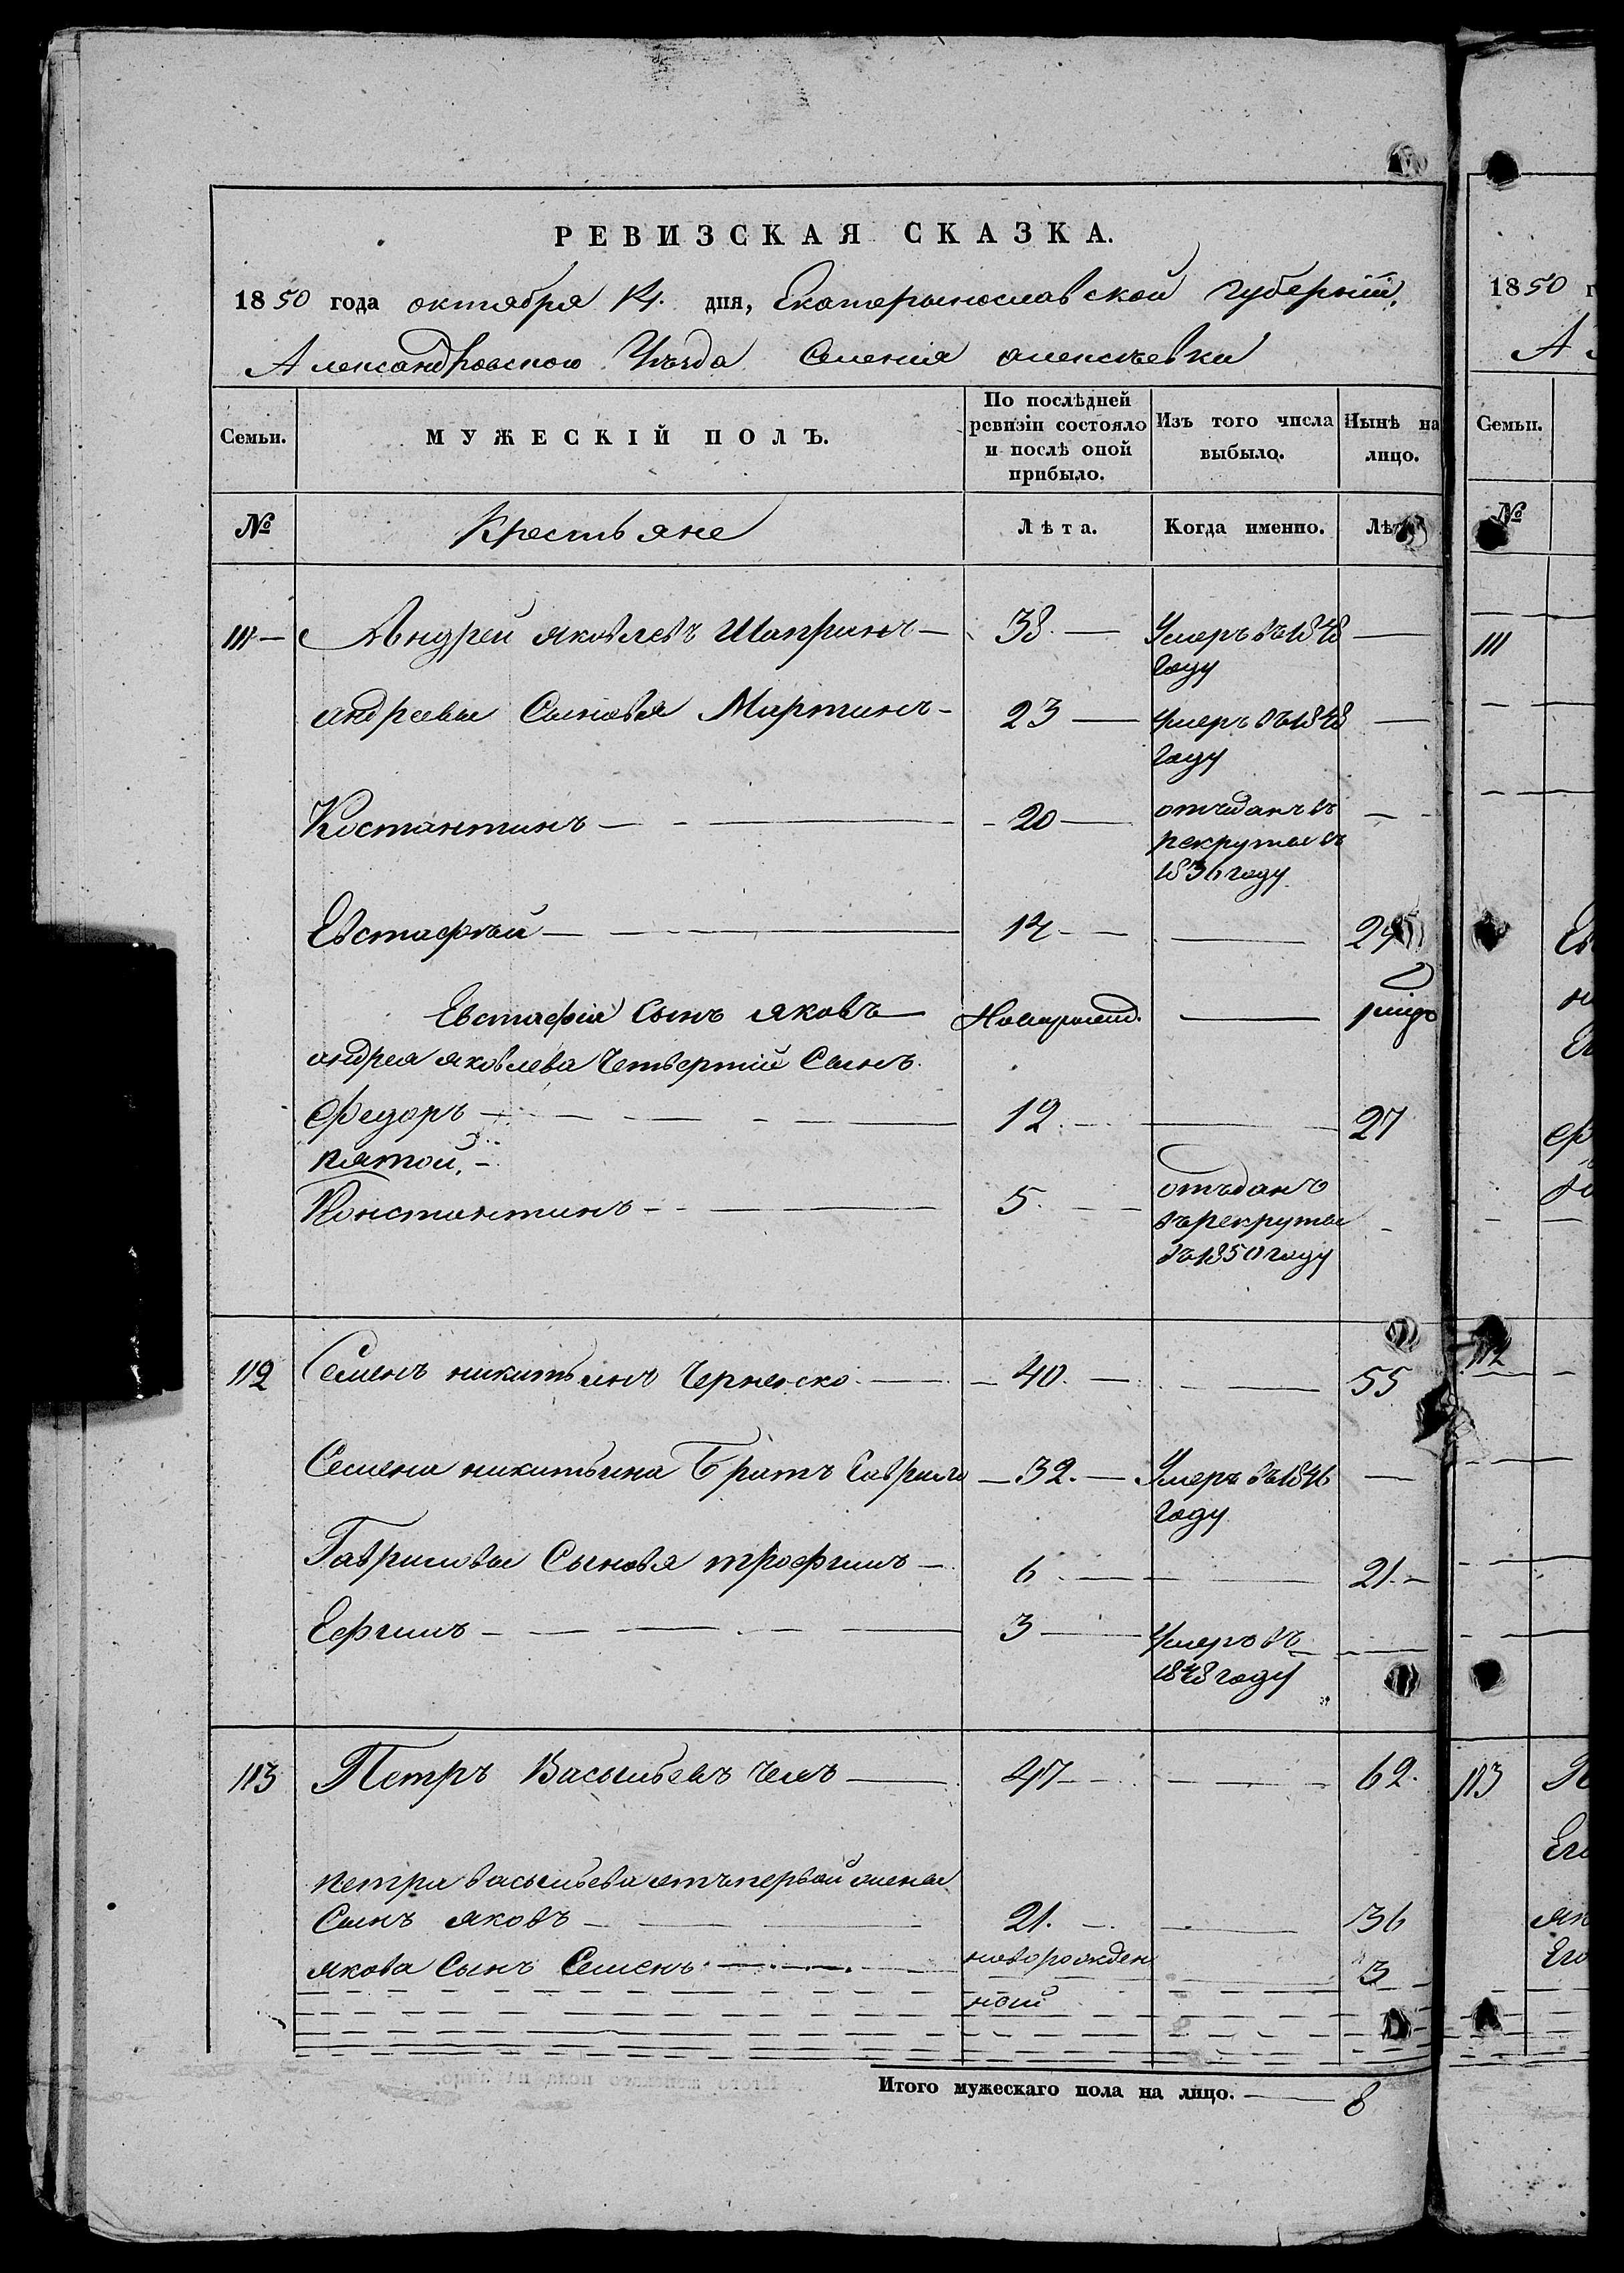 РЕВИЗСКАЯ СКАЗКА.
1850 года октября 14. дня, Екатериносла­вской губернии,
Александровского Уѣзда Селенія алексѣевки
Семьи. МУЖЕСКІЙ ПОЛЪ. По послѣдней ревизіи состояло и послѣ оной прибыло. Изъ того числа выбыло. Нынѣ на лицо.
№ Крестьяне Лѣта. Когда именно. Лѣта
111 Андрей яковлевъ Шапринъ 38 Умеръ въ 1848
году
андреевы Сыновья Мартинъ 23 Умеръ въ 1848
году
Костантинъ 20 отъданъ въ
рекруты въ
1836 году
Евстафѣй 14 29
Евстафія Сынъ яковъ Новорожд.
андрея яковлева Четвертій Сынъ
Федоръ 12 27
пятой
Константинъ 5 отъданъ
въ рекруты
въ 1850 году
112 Семенъ никитынъ Черненко 40 55
Семена никитына Братъ Гаврило 32 Умеръ въ 1846
году
Гавриловы Сыновя трофимъ 6 21
Ефимъ 3 Умеръ въ
1848 году
113 Петръ Васыльевъ 47 62
петра васыльева отъ первой жены
Сынъ яковъ 21 36
якова Сынъ Семенъ новорожден 3
ной
Итого мужескаго пола на лицо. 8
1850 г
А
Семьи.
№
111
112
113